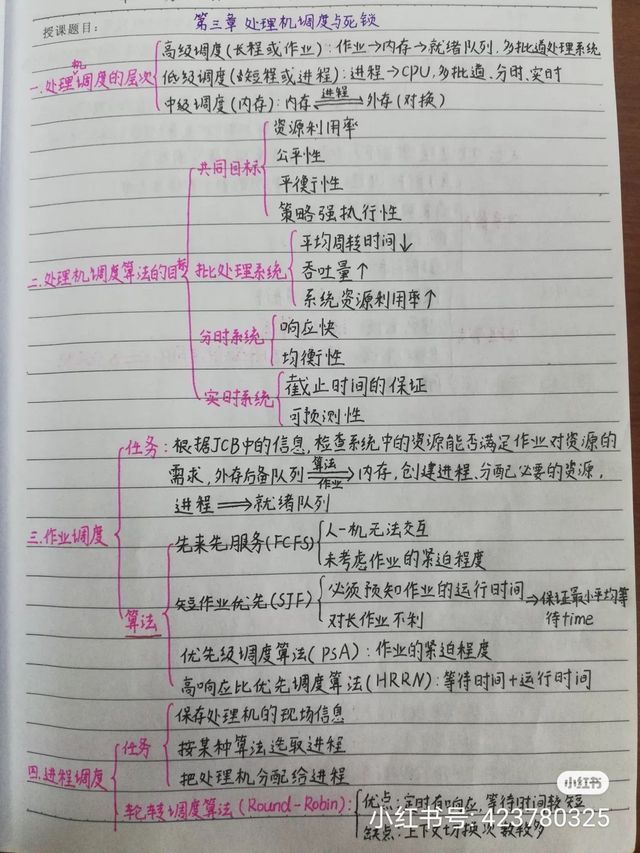 授课题目：
第三章处理机调度与死锁
一.处理机调度的层次
高级调度(长程或作业)：作业→内存→就绪队列，多批道处理系统
低级调度(短程或进程)：进程→CPU，多批道、分时、实时
中级调度(内存)：内存 进程 外存(对换)
二.处理机调度算法的目标
共同目标
资源利用率
公平性
平衡性
策略强执行性
批处理系统
平均周转时间↓
吞吐量↑
系统资源利用率↑
分时系统
响应快
均衡性
实时系统
截止时间的保证
可预测性
三.作业调度
任务：根据JCB中的信息，检查系统中的资源能否满足作业对资源的
需求，外存后备队列 算法 作业 内存，创建进程、分配必要的资源，
进程⟹就绪队列
算法
先来先服务(FCFS)
人一机无法交互
未考虑作业的紧迫程度
短作业优先(SJF)
必须预知作业的运行时间
对长作业不利
⇒保证最小平均等
待time
优先级调度算法(PSA)：作业的紧迫程度
高响应比优先调度算法(HRRN)：等待时间+运行时间
四.进程调度
任务
保存处理机的现场信息
按某种算法选取进程
把处理机分配给进程
轮转调度算法(Round-Robin)：
优点：定时有响应，等待时间较短
缺点：上下文切换次数较多
小红书
小红书号：423780325